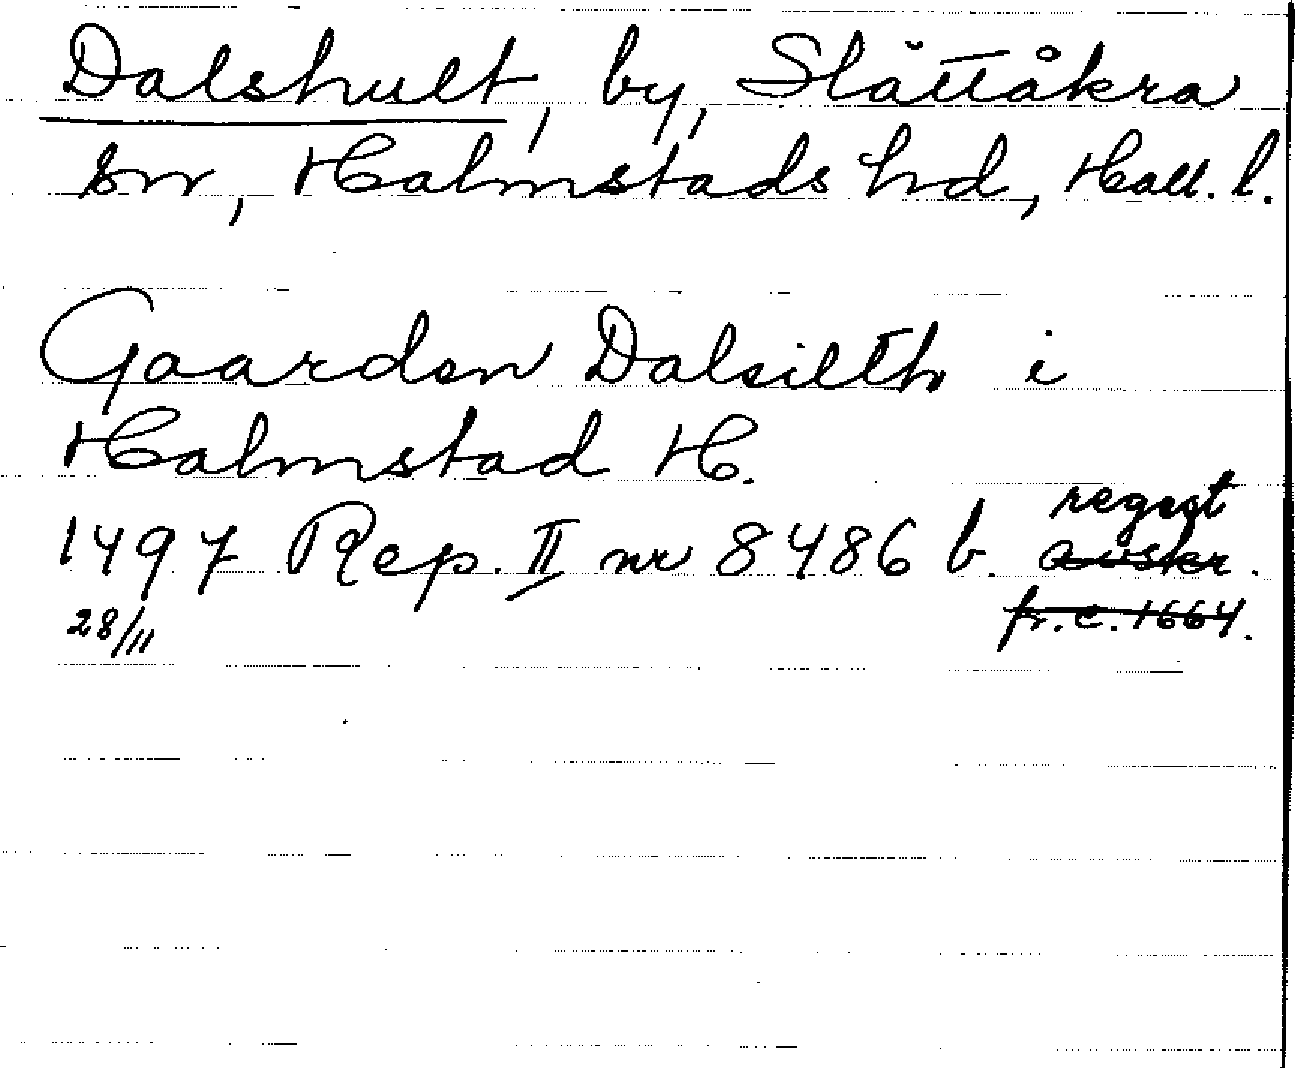 Dalshult, by, Slättåkra
sn, Halmstads hd, Hall. l.
Gaarden Dalsilth i
Halmstad H.
regest
1497 Rep. II nr 8486 b. avskr.
28/11 fr. c. 1664.